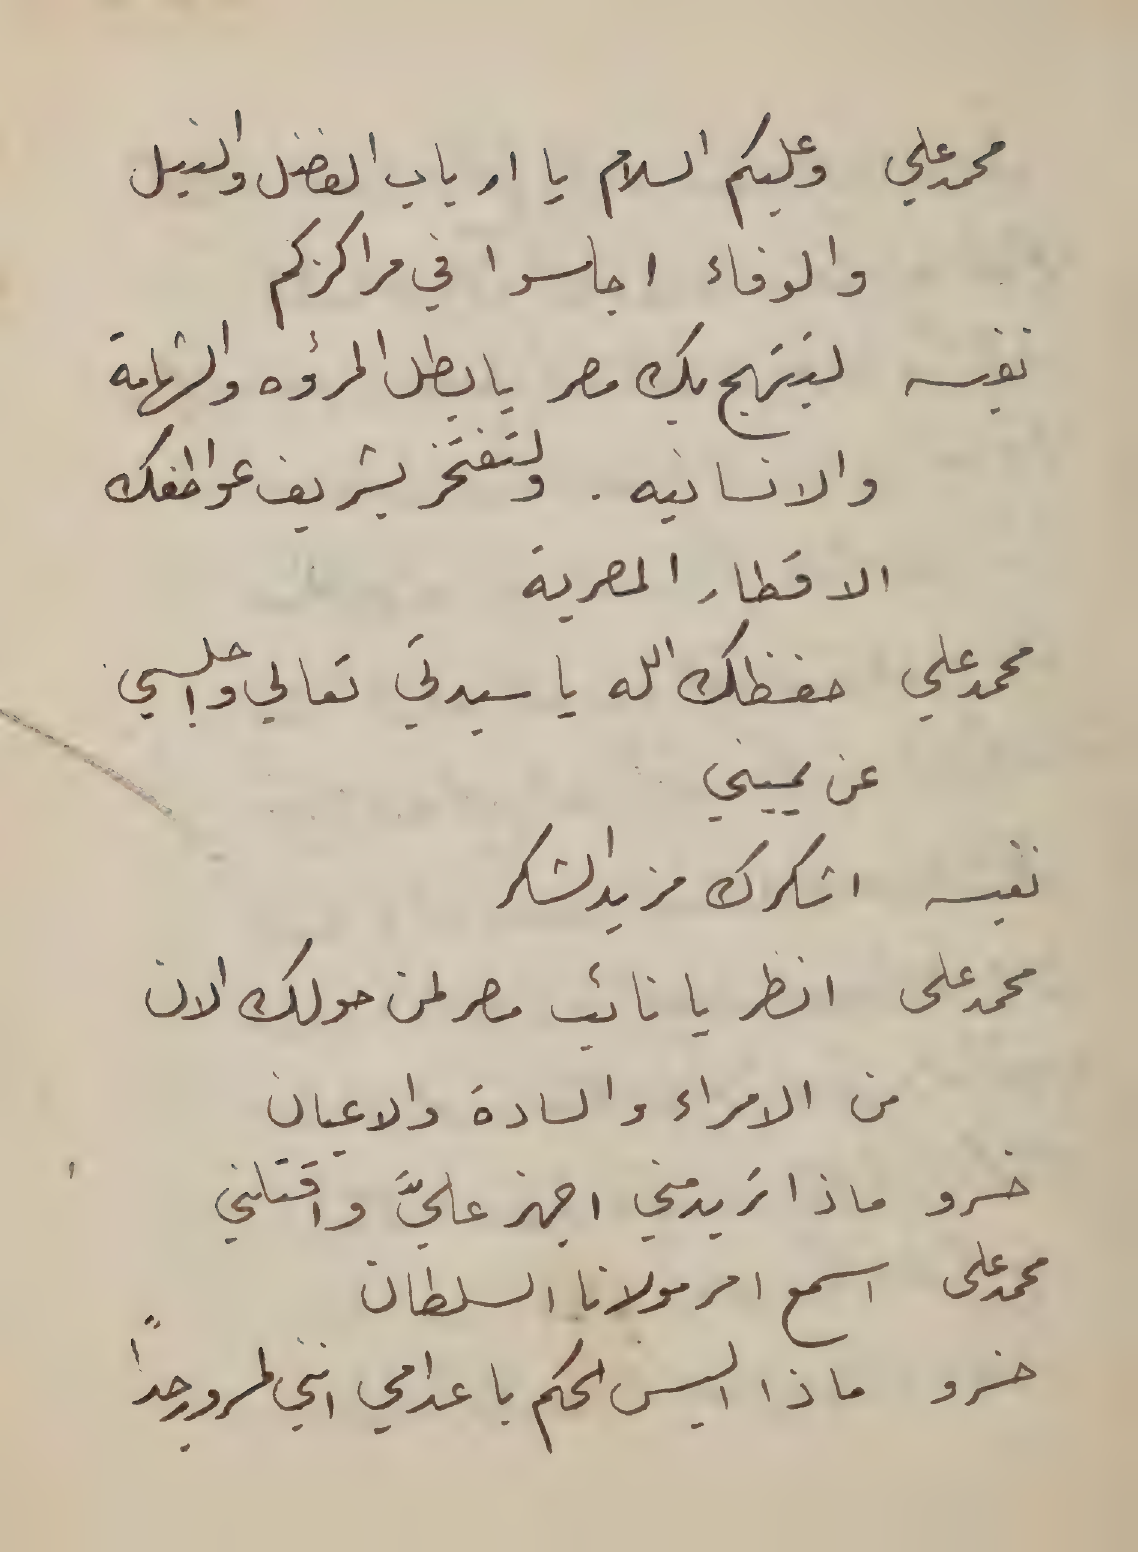 محمد علي وعليكم السلام يا ارباب الفضل والنبل
والوفاء اجلسوا في مراكزكم
نفيسه لتبتهج بك مصر يا بطل المرؤه والشهامة
والانسانيه . ولتفتخر بشريف عواطفك
الاقطار المصرية
محمد علي حفظك الله يا سيدتي تعالي واجلسي
عن يميني
نفيسه اشكرك مزيد الشكر
محمد على انظر يا نائب مصر لمن حولك الان
من الامراء والسادة والاعيان
خسرو ماذا تريد مني اجهز عليَّ واقتلني
محمد على اسمع امر مولانا السلطان
خسرو ماذا اليس الحكم باعدامي انني لمسرور جداً